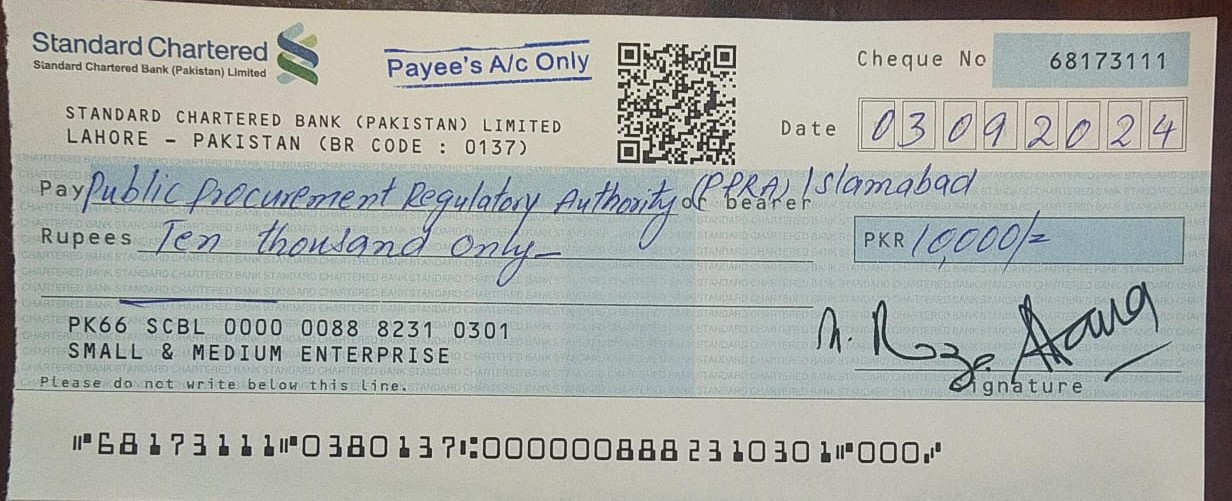 Standard Chartered
Standard Chartered Bank (Pakistan) Limited
Payee's A/c Only
Cheque No 68173111
STANDARD CHARTERED BANK (PAKISTAN) LIMITED
LAHORE - PAKISTAN (BR CODE : 0137)
Date 03092024
Pay Public Procurement Regulatory Authority (PPRA) Islamabad or bearer
Rupees Ten thousand only-
PKR 10,000/=
PK66 SCBL 0000 0088 8231 0301
SMALL & MEDIUM ENTERPRISE
Signature
Please do not write below this line.
⑈68173111⑈0380137⑆0000008882310301⑈000⑇